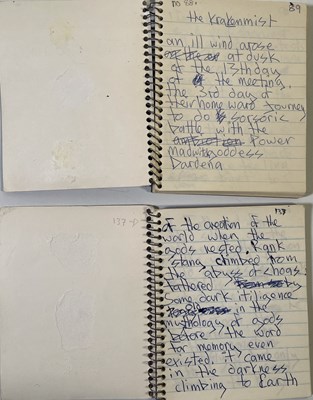 89
the Krakenmist
an ill wind arose
at dusk
of the 13th day
of the meeting.
the 3rd day of
their home ward journey
to do sorsoric
battle with the
power
mad goddess
Dardena
137
of the creation of the
world when the
gods rested. Rank
slang climbed from
the abyss of chaos.
fathered by
some dark itiligence
in the
mythology of gods
before the word
for memory even
existed. it came
in the darkness
climbing to Earth